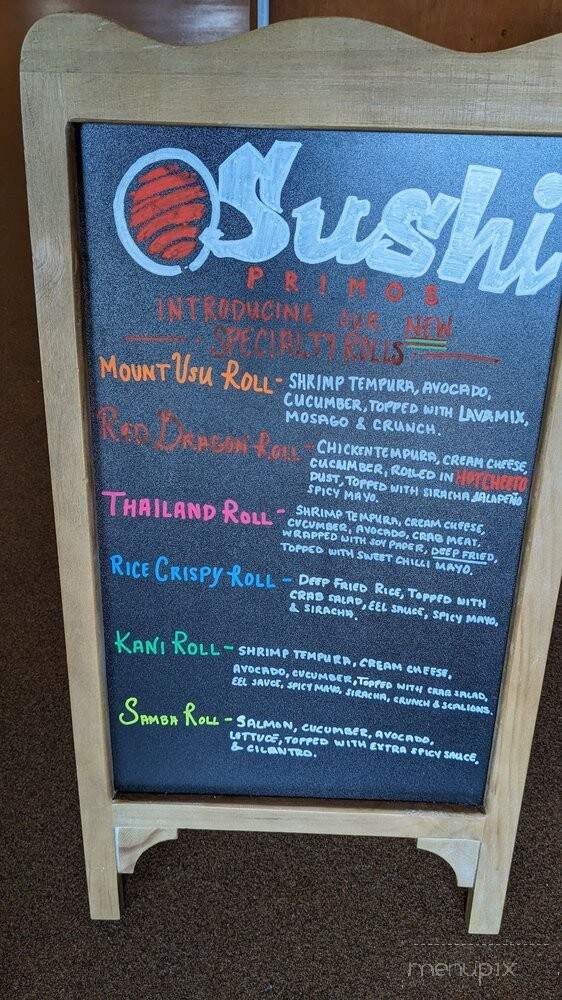 Sushi
PRIMOS
INTRODUCING OUR NEW
SPECIALTY ROLLS
MOUNT USU ROLL - SHRIMP TEMPURA, AVOCADO,
CUCUMBER, TOPPED WITH LAVAMIX,
MOSAGO & CRUNCH.
RED DRAGON ROLL - CHICKEN TEMPURA, CREAM CHEESE,
CUCUMBER, ROLLED IN HOT CHEETO
DUST, TOPPED WITH SIRACHA JALAPEÑO
SPICY MAYO.
THAILAND ROLL - SHRIMP TEMPURA, CREAM CHEESE,
CUCUMBER, AVOCADO, CRAB MEAT,
WRAPPED WITH SOY PAPER, DEEP FRIED,
TOPPED WITH SWEET CHILLI MAYO.
RICE CRISPY ROLL - DEEP FRIED RICE, TOPPED WITH
CRAB SALAD, EEL SAUCE, SPICY MAYO,
& SIRACHA.
KANI ROLL - SHRIMP TEMPURA, CREAM CHEESE,
AVOCADO, CUCUMBER, TOPPED WITH CRAB SALAD,
EEL SAUCE, SPICY MAYO, SIRACHA, CRUNCH & SCALIONS.
SAMBA ROLL - SALMON, CUCUMBER, AVOCADO,
LETTUCE, TOPPED WITH EXTRA SPICY SAUCE,
& CILANTRO.
menupix